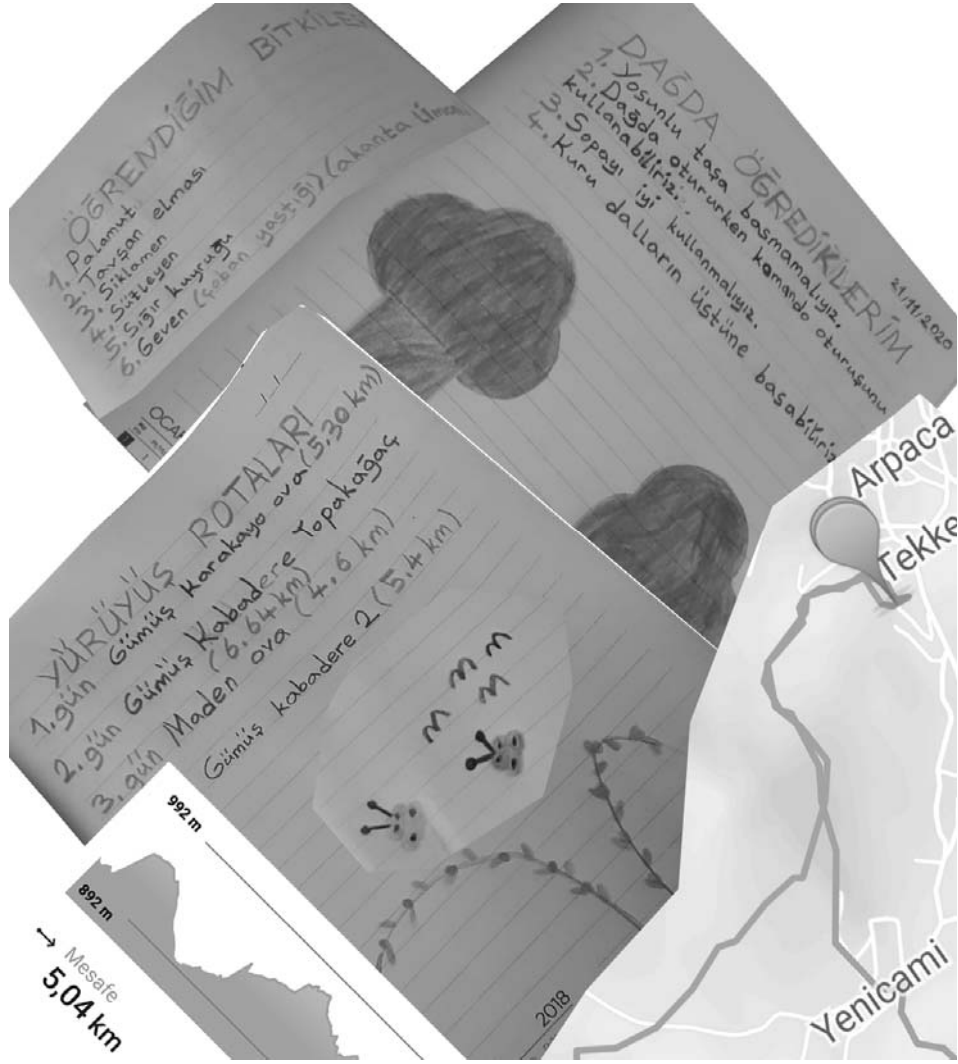 ÖĞRENDİĞİM BİTKİLER
1. Palamut
2. Tavşan elması
3. Siklamen
4. Sütleyen
5. Sığır kuyruğu
6. Geven (çoban yastığı)
21/11/2020
DAĞDA ÖĞREDİKLERİM
1. Yosunlu taşa basmamalıyız.
2. Dağda otururken komando oturuşunu
kullanabiliriz.
3. Sopayı iyi kullanmalıyız.
4. Kuru dalların üstüne basabiliriz
YÜRÜYÜŞ ROTALARI
1. gün Gümüş karakayo ova (5.30 km)
2. gün Gümüş Kabadere Topakağaç
(6.64 km)
3. gün Maden ova (4.6 km)
Gümüş kabadere 2 (5.4 km)
2018
992 m
892 m
Mesafe
5,04 km
Arpaca
Tekke
Yenicami